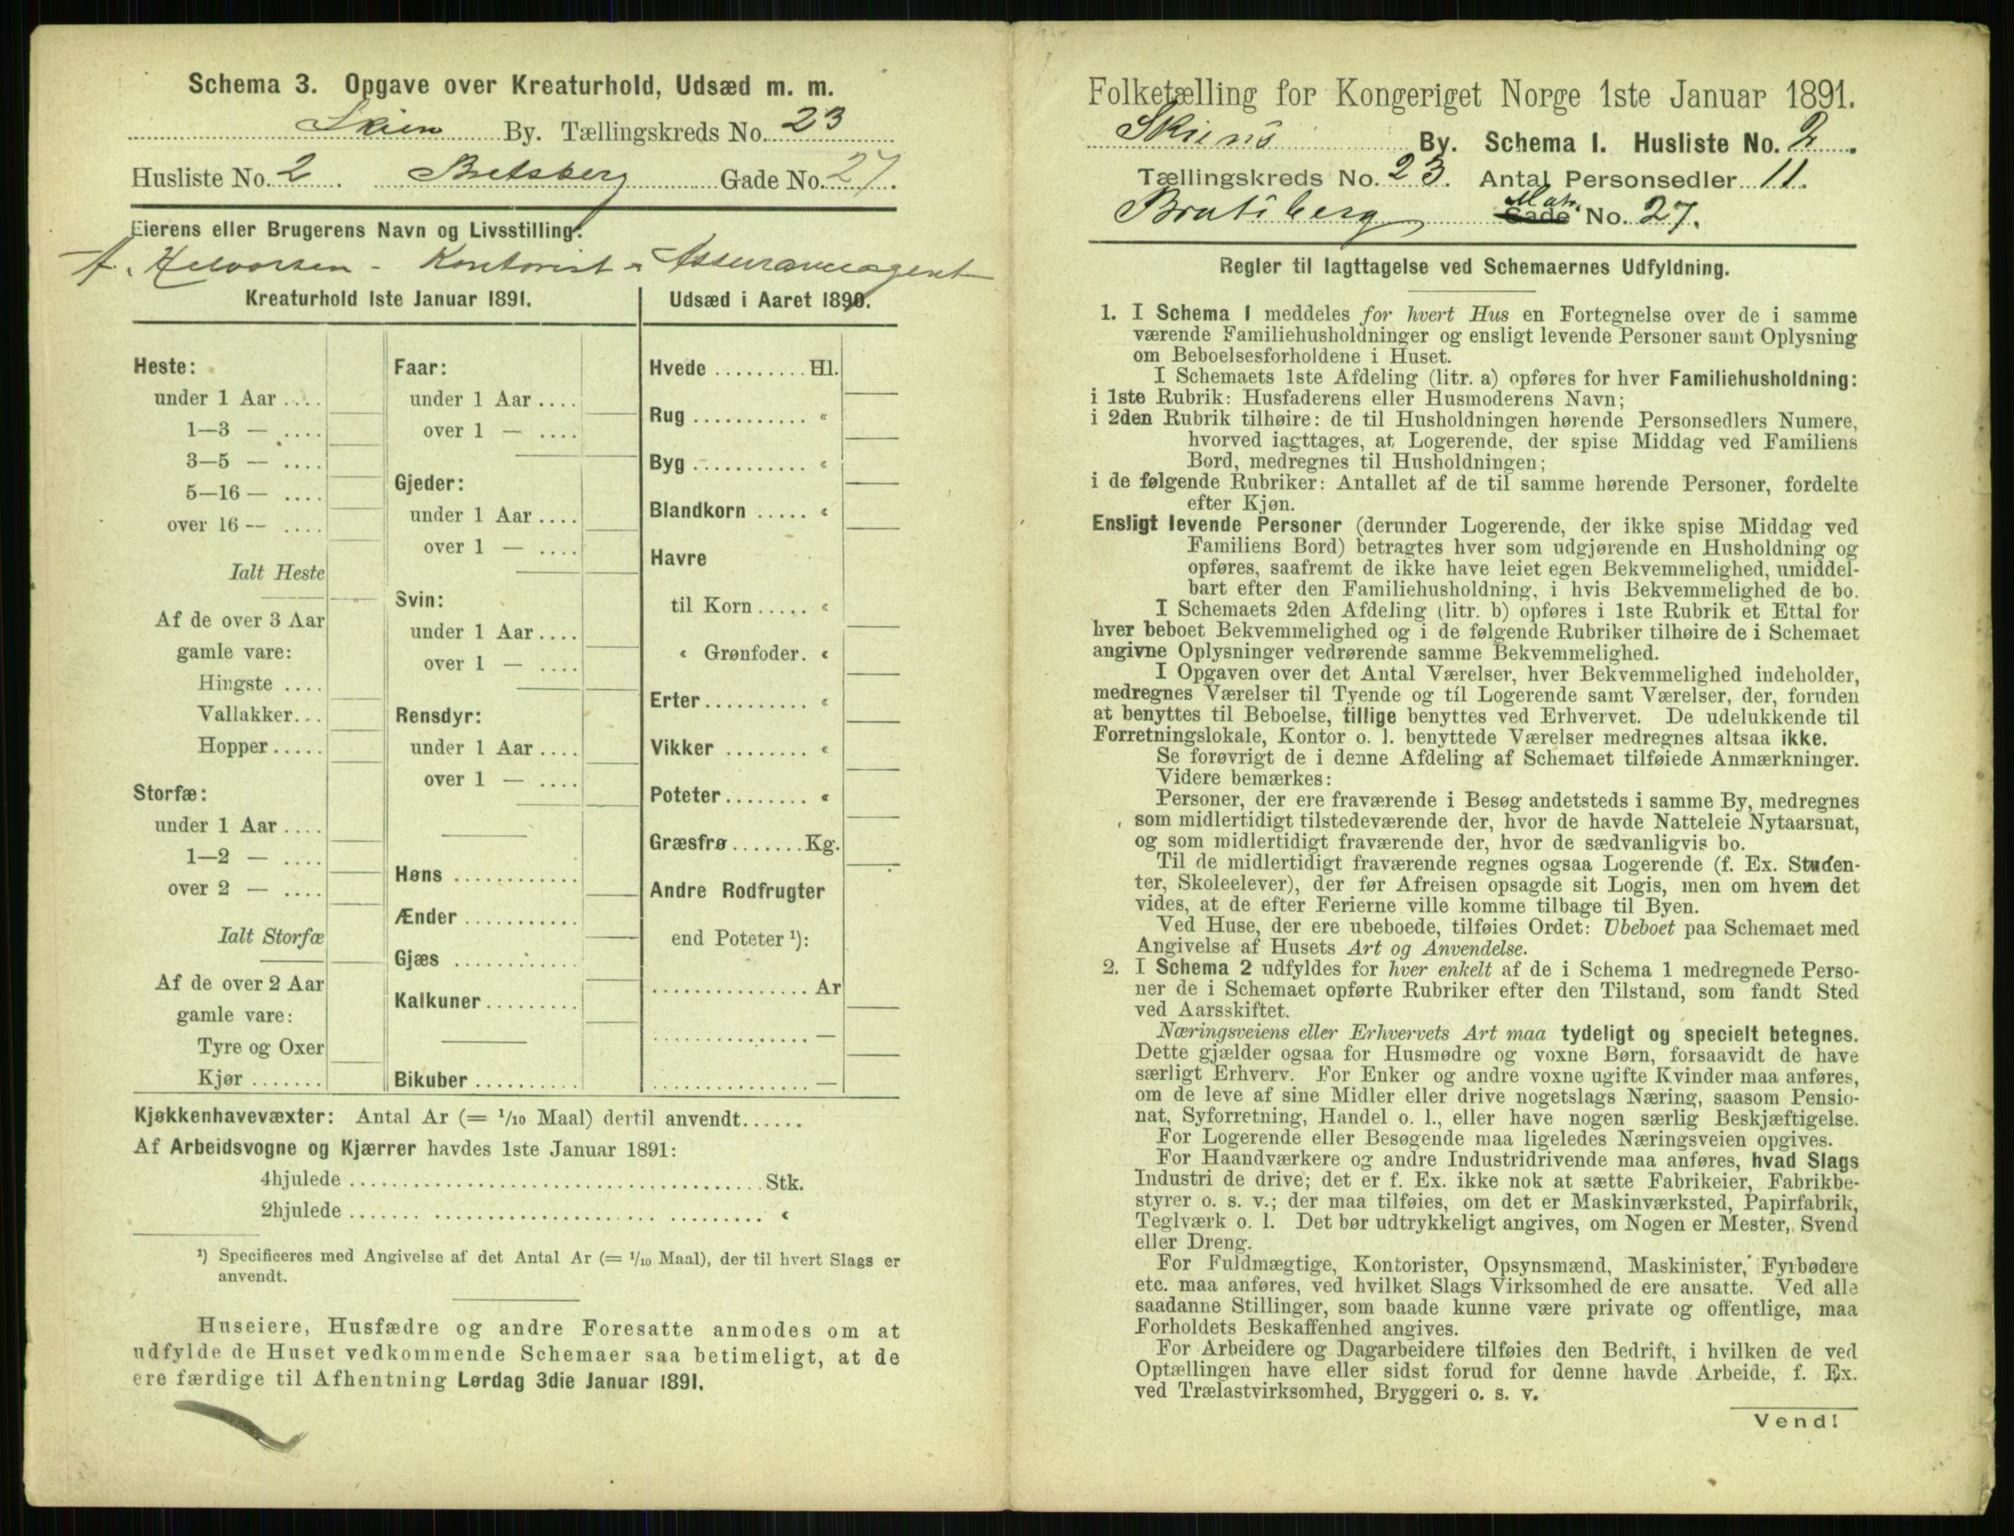 Schema 3. Opgave over Kreaturhold, Udsæd m. m.
Skien By. Tællingskreds No. 23
Husliste No. 2 . Bratsberg Gade No. 27.
Eierens eller Brugerens Navn og Livsstilling:
A. Halvorsen - Kontorist & Assuranceagent
Kreaturhold 1ste Januar 1891.
Heste:
under 1 Aar ....
1—3 — ....
3—5 — ....
5—16 — ....
over 16 — ....
Ialt Heste
Af de over 3 Aar
gamle vare:
Hingste ....
Vallakker...
Hopper.....
Storfæ:
under 1 Aar ....
1—2 — ....
over 2 — ....
Ialt Storfæ
Af de over 2 Aar
gamle vare:
Tyre og Oxer
Kjør .......
Faar:
under 1 Aar ....
over 1 — ....
Gjeder:
under 1 Aar ....
over 1 — ....
Svin:
under 1 Aar ....
over 1 — ....
Rensdyr:
under 1 Aar ....
over 1 — ....
Høns ............
Ænder ...........
Gjæs ............
Kalkuner.........
Bikuber ..........
Udsæd i Aaret 1890.
Hvede ......... Hl.
Rug ........... «
Byg ........... «
Blandkorn ..... «
Havre
til Korn ..... «
« Grønfoder. «
Erter.......... «
Vikker ........ «
Poteter........ «
Græsfrø....... Kg.
Andre Rodfrugter
end Poteter ¹):
............... Ar
............... —
............... —
Kjøkkenhavevæxter: Antal Ar (= 1/10 Maal) dertil anvendt......
Af Arbeidsvogne og Kjærrer havdes 1ste Januar 1891:
4hjulede ........................................ Stk.
2hjulede ........................................ «
¹) Specificeres med Angivelse af det Antal Ar (= 1/10 Maal), der til hvert Slags er
anvendt.
Huseiere, Husfædre og andre Foresatte anmodes om at
udfylde de Huset vedkommende Schemaer saa betimeligt, at de
ere færdige til Afhentning Lørdag 3die Januar 1891.
Folketælling for Kongeriget Norge 1ste Januar 1891.
Skiens By. Schema I. Husliste No. 2 .
Tællingskreds No. 23. Antal Personsedler 11.
Bratsberg Gade Matr. No. 27.
Regler til Iagttagelse ved Schemaernes Udfyldning.
1. I Schema 1 meddeles for hvert Hus en Fortegnelse over de i samme
værende Familiehusholdninger og ensligt levende Personer samt Oplysning
om Beboelsesforholdene i Huset.
I Schemaets 1ste Afdeling (litr. a) opføres for hver Familiehusholdning:
i 1ste Rubrik: Husfaderens eller Husmoderens Navn;
i 2den Rubrik tilhøire: de til Husholdningen hørende Personsedlers Numere,
hvorved iagttages, at Logerende, der spise Middag ved Familiens
Bord, medregnes til Husholdningen;
i de følgende Rubriker: Antallet af de til samme hørende Personer, fordelte
efter Kjøn.
Ensligt levende Personer (derunder Logerende, der ikke spise Middag ved
Familiens Bord) betragtes hver som udgjørende en Husholdning og
opføres, saafremt de ikke have leiet egen Bekvemmelighed, umiddel-
bart efter den Familiehusholdning, i hvis Bekvemmelighed de bo.
I Schemaets 2den Afdeling (litr. b) opføres i 1ste Rubrik et Ettal for
hver beboet Bekvemmelighed og i de følgende Rubriker tilhøire de i Schemaet
angivne Oplysninger vedrørende samme Bekvemmelighed.
I Opgaven over det Antal Værelser, hver Bekvemmelighed indeholder,
medregnes Værelser til Tyende og til Logerende samt Værelser, der, foruden
at benyttes til Beboelse, tillige benyttes ved Erhvervet. De udelukkende til
Forretningslokale, Kontor o. l. benyttede Værelser medregnes altsaa ikke.
Se forøvrigt de i denne Afdeling af Schemaet tilføiede Anmærkninger.
Videre bemærkes:
Personer, der ere fraværende i Besøg andetsteds i samme By, medregnes
som midlertidigt tilstedeværende der, hvor de havde Natteleie Nytaarsnat,
og som midlertidigt fraværende der, hvor de sædvanligvis bo.
Til de midlertidigt fraværende regnes ogsaa Logerende (f. Ex. Studen-
ter, Skoleelever), der før Afreisen opsagde sit Logis, men om hvem det
vides, at de efter Ferierne ville komme tilbage til Byen.
Ved Huse, der ere ubeboede, tilføies Ordet: Ubeboet paa Schemaet med
Angivelse af Husets Art og Anvendelse.
2. I Schema 2 udfyldes for hver enkelt af de i Schema 1 medregnede Perso-
ner de i Schemaet opførte Rubriker efter den Tilstand, som fandt Sted
ved Aarsskiftet.
Næringsveiens eller Erhvervets Art maa tydeligt og specielt betegnes.
Dette gjælder ogsaa for Husmødre og voxne Børn, forsaavidt de have
særligt Erhverv. For Enker og andre voxne ugifte Kvinder maa anføres,
om de leve af sine Midler eller drive nogetslags Næring, saasom Pensio-
nat, Syforretning, Handel o. l., eller have nogen særlig Beskjæftigelse.
For Logerende eller Besøgende maa ligeledes Næringsveien opgives.
For Haandværkere og andre Industridrivende maa anføres, hvad Slags
Industri de drive; det er f. Ex. ikke nok at sætte Fabrikeier, Fabrikbe-
styrer o. s. v.; der maa tilføies, om det er Maskinværksted, Papirfabrik,
Teglværk o. l. Det bør udtrykkeligt angives, om Nogen er Mester, Svend
eller Dreng.
For Fuldmægtige, Kontorister, Opsynsmænd, Maskinister, Fyrbødere
etc. maa anføres, ved hvilket Slags Virksomhed de ere ansatte. Ved alle
saadanne Stillinger, som baade kunne være private og offentlige, maa
Forholdets Beskaffenhed angives.
For Arbeidere og Dagarbeidere tilføies den Bedrift, i hvilken de ved
Optællingen have eller sidst forud for denne havde Arbeide, f. Ex.
ved Trælastvirksomhed, Bryggeri o. s. v.
Vend!